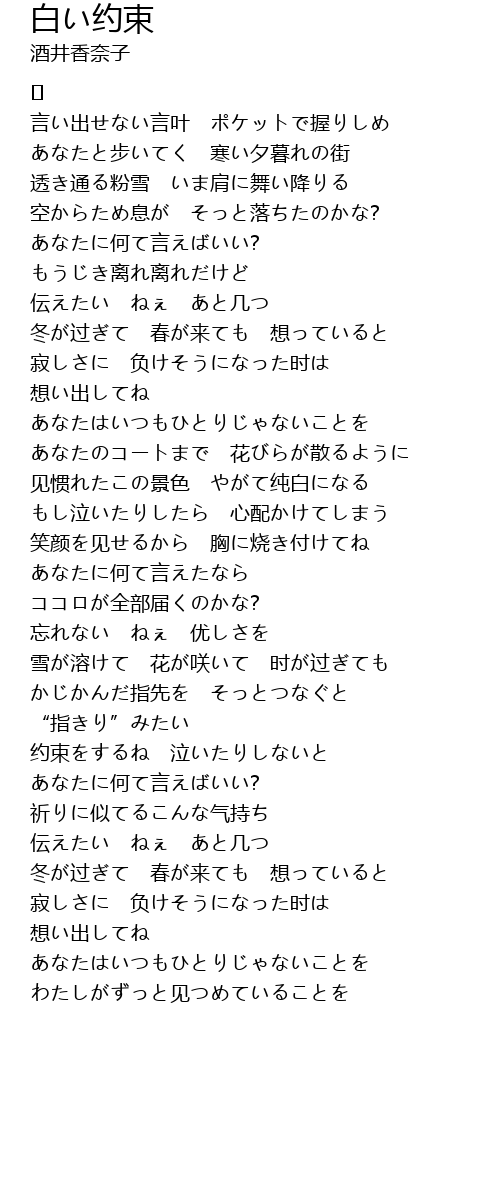 白い约束
酒井香奈子
言い出せない言叶　ポケットで握りしめ
あなたと歩いてく　寒い夕暮れの街
透き通る粉雪　いま肩に舞い降りる
空からため息が　そっと落ちたのかな?
あなたに何て言えばいい?
もうじき离れ离れだけど
伝えたい　ねぇ　あと几つ
冬が过ぎて　春が来ても　想っていると
寂しさに　负けそうになった时は
想い出してね
あなたはいつもひとりじゃないことを
あなたのコートまで　花びらが散るように
见惯れたこの景色　やがて纯白になる
もし泣いたりしたら　心配かけてしまう
笑颜を见せるから　胸に烧き付けてね
あなたに何て言えたなら
ココロが全部届くのかな?
忘れない　ねぇ　优しさを
雪が溶けて　花が咲いて　时が过ぎても
かじかんだ指先を　そっとつなぐと
“指きり”みたい
约束をするね　泣いたりしないと
あなたに何て言えばいい?
祈りに似てるこんな气持ち
伝えたい　ねぇ　あと几つ
冬が过ぎて　春が来ても　想っていると
寂しさに　负けそうになった时は
想い出してね
あなたはいつもひとりじゃないことを
わたしがずっと见つめていることを